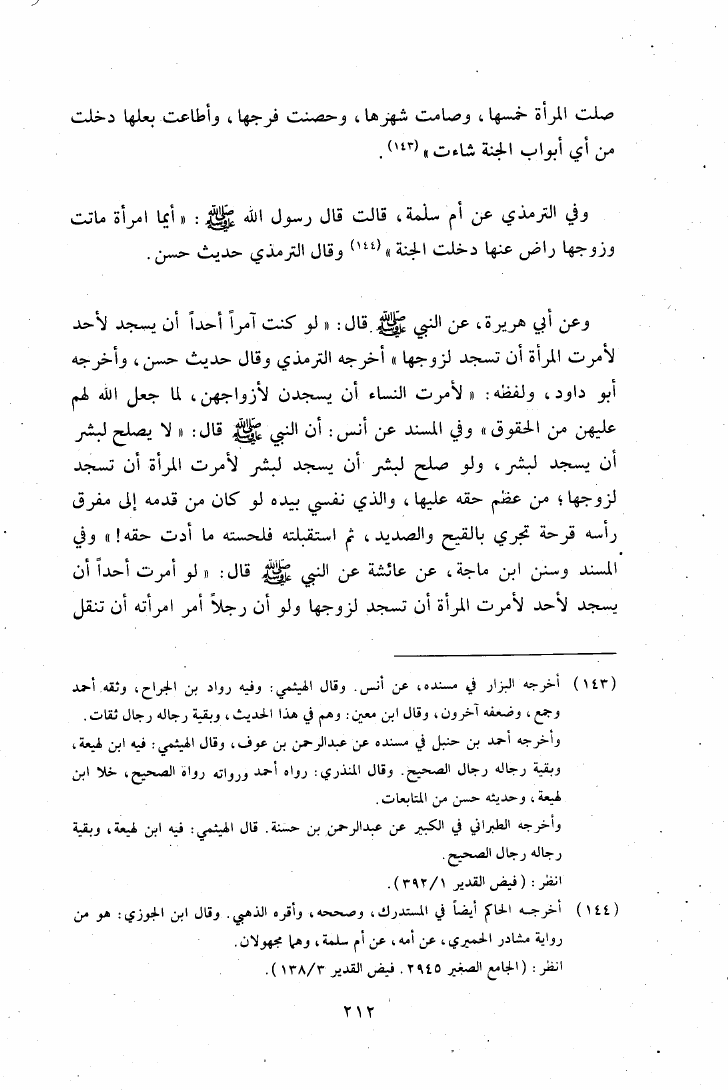 صلت المرأة خمسها، وصامت شهرها، وحصنت فرجها، وأطاعت بعلها دخلت
من أي أبواب الجنة شاءت» (١٤٣).
وفي الترمذي عن أم سلمة، قالت قال رسول الله ﷺ : «أيما امرأة ماتت
وزوجها راض عنها دخلت الجنة» (١٤٤) وقال الترمذي حديث حسن.
وعن أبي هريرة، عن النبي ﷺ قال: «لو كنت آمراً أحداً أن يسجد لأحد
لأمرت المرأة أن تسجد لزوجها» أخرجه الترمذي وقال حديث حسن، وأخرجه
أبو داود، ولفظه: «لأمرت النساء أن يسجدن لأزواجهن، لما جعل الله لهم
عليهن من الحقوق» وفي المسند عن أنس: أن النبي ﷺ قال: «لا يصلح لبشر
أن يسجد لبشر، ولو صلح لبشر أن يسجد لبشر لأمرت المرأة أن تسجد
لزوجها؛ من عظم حقه عليها، والذي نفسي بيده لو كان من قدمه إلى مفرق
رأسه قرحة تجري بالقيح والصديد، ثم استقبلته فلحسته ما أدت حقه!» وفي
المسند وسنن ابن ماجة، عن عائشة عن النبي ﷺ قال: «لو أمرت أحداً أن
يسجد لأحد لأمرت المرأة أن تسجد لزوجها ولو أن رجلاً أمر امرأته أن تنقل
(١٤٣) أخرجه البزار في مسنده، عن أنس. وقال الهيثمي: وفيه رواد بن الجراح، وثقه أحمد
وجمع، وضعفه آخرون، وقال ابن معين: وهم في هذا الحديث، وبقية رجاله رجال ثقات.
وأخرجه أحمد بن حنبل في مسنده عن عبدالرحمن بن عوف، وقال الهيثمي: فيه ابن لهيعة،
وبقية رجاله رجال الصحيح. وقال المنذري: رواه أحمد ورواته رواة الصحيح، خلا ابن
لهيعة، وحديثه حسن من المتابعات.
وأخرجه الطبراني في الكبير عن عبدالرحمن بن حسنة. قال الهيثمي: فيه ابن لهيعة، وبقية
رجاله رجال الصحيح.
انظر: (فيض القدير ٣٩٢/١).
(١٤٤) أخرجه الحاكم أيضاً في المستدرك، وصححه، وأقره الذهبي. وقال ابن الجوزي: هو من
رواية مشادر الحميري، عن أمه، عن أم سلمة، وهما مجهولان.
انظر: (الجامع الصغير ٢٩٤٥. فيض القدير ١٣٨/٣).
٢١٢